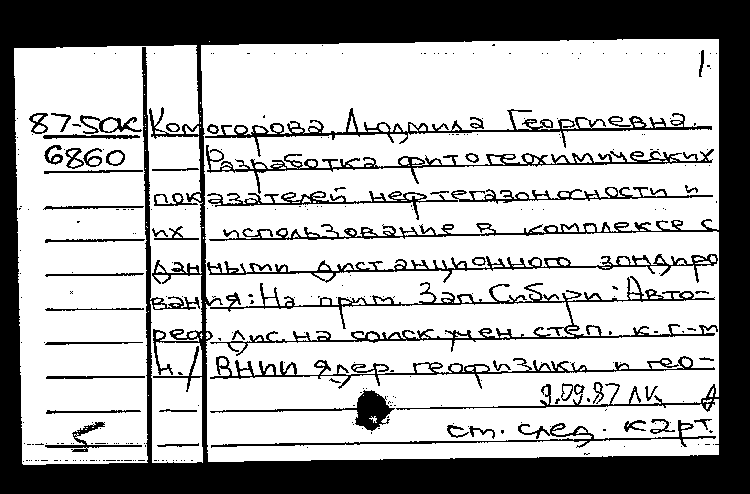 1.
87-5ОК Комогорова, Людмила Георгиевна.
6860 Разработка фитогеохимических
показателей нефтегазоносности и
их использование в комплексе с
данными дистанционного зондиро
вания: На прим. Зап. Сибири: Авто-
реф. дис. на соиск. учен. степ. к. г.-м
н. / ВНИИ ядер. геофизики и гео-
9.09.87 ЛК
5 ст. след. карт.